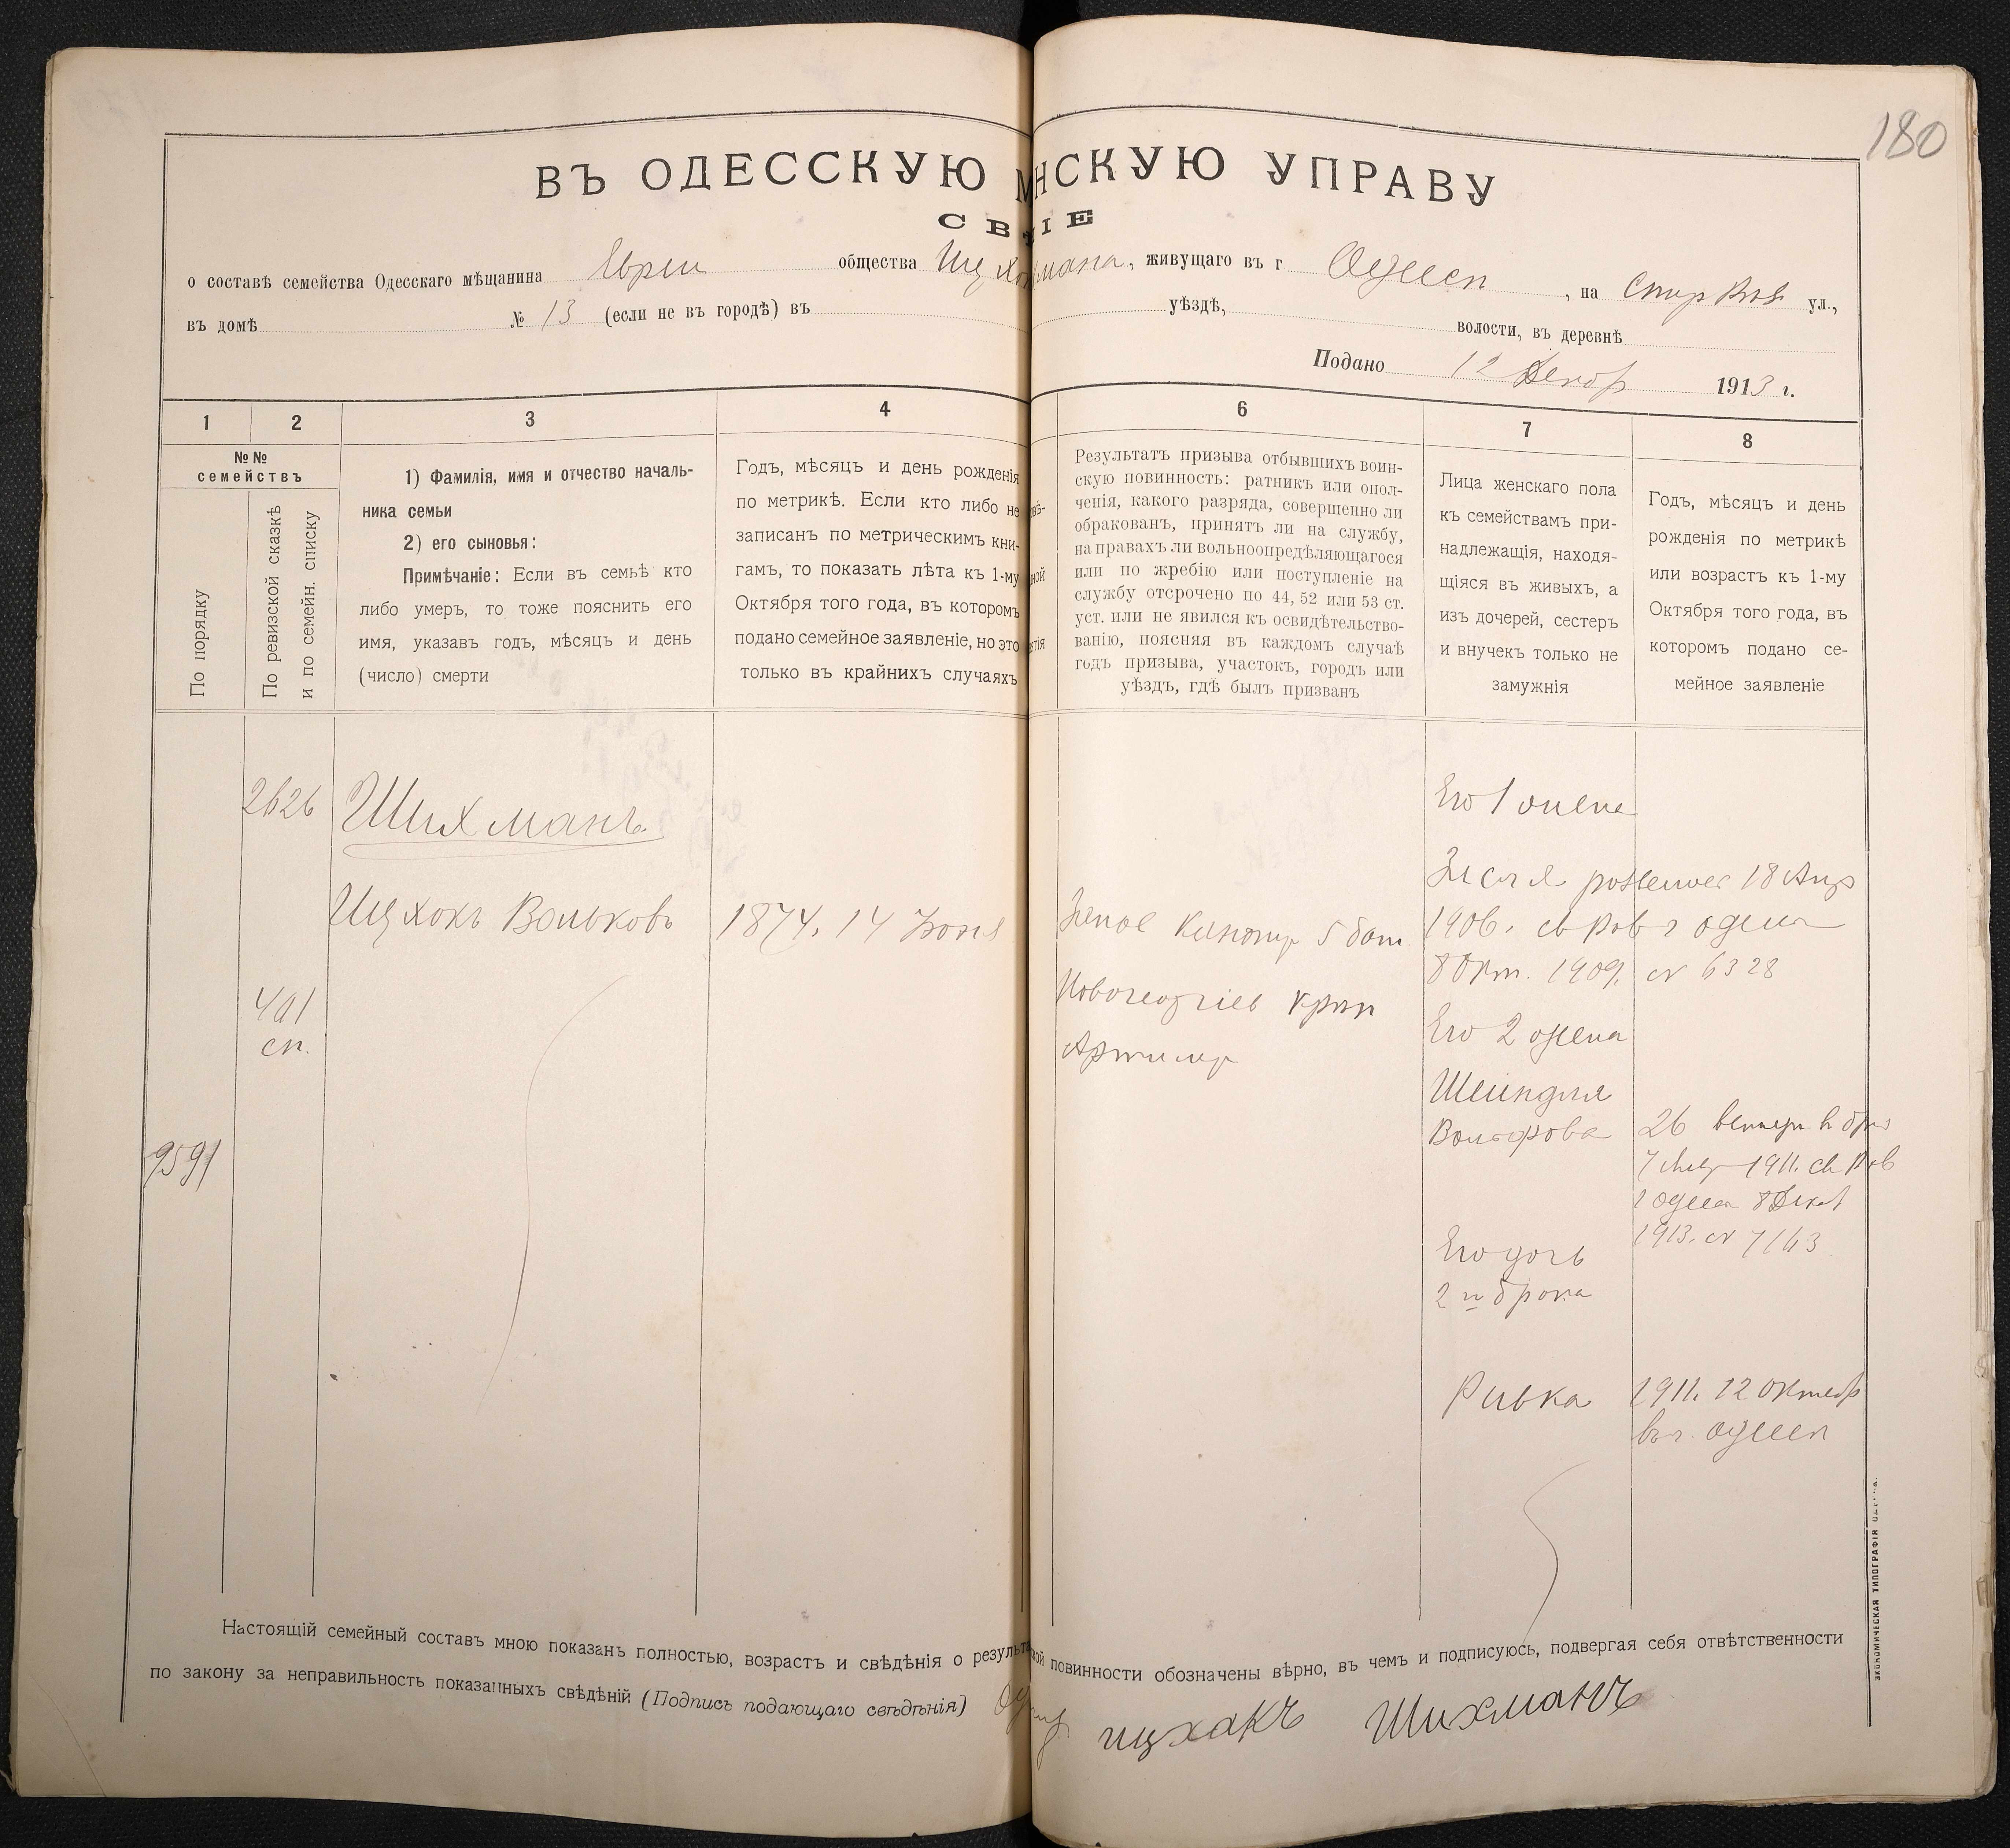 180
ВЪ ОДЕССКУЮ М НСКУЮ УПРАВУ
СВ ІЕ
о составѣ семейства Одесскаго мѣщанина Евреи общества Иц Хо Шихмана, живущаго въ г Одессѣ, на ул.,
въ домѣ № 13 (если не въ городѣ) въ уѣздѣ, волости, въ деревнѣ
Подано 12 Декабр 1913 г.
1 2 3 4 6 7 8
№№
семействъ
По порядку
По ревизской сказкѣ
и по семейн. списку
1) Фамилія, имя и отчество началь-
ника семьи
2) его сыновья:
Примѣчаніе: Если въ семьѣ кто
либо умеръ, то тоже пояснить его
имя, указавъ годъ, мѣсяцъ и день
(число) смерти
Годъ, мѣсяцъ и день рожденія
по метрикѣ. Если кто либо не
записанъ по метрическимъ кни-
гамъ, то показать лѣта къ 1-му
Октября того года, въ которомъ
подано семейное заявленіе, но это
только въ крайнихъ случаяхъ
Результатъ призыва отбывшихъ воин-
скую повинность: ратникъ или опол-
ченія, какого разряда, совершенно ли
обракованъ, принятъ ли на службу,
на правахъ ли вольноопредѣляющагося
или по жребію или поступленіе на
службу отсрочено по 44, 52 или 53 ст.
уст. или не явился къ освидѣтельство-
ванію, поясняя въ каждомъ случаѣ
годъ призыва, участокъ, городъ или
уѣздъ, гдѣ былъ призванъ
Лица женскаго пола
къ семействамъ при-
надлежащія, находя-
щіяся въ живыхъ, а
изъ дочерей, сестеръ
и внучекъ только не
замужнія
Годъ, мѣсяцъ и день
рожденія по метрикѣ
или возрастъ къ 1-му
Октября того года, въ
которомъ подано се-
мейное заявленіе
2626 Шихманъ
Ицхокъ Вольковъ 1874, 14 Іюня
401
сп.
9591
Запас Канонир 5 бат
Новогеоргіев креп
Артилер
Его 1 жена
Зисля 18 Апр
1906. св Рав г Одесса
8 Окт. 1909. № 6328
Его 2 жена
Шейндля
26
1911. св Рав
г Одесса 8 Декаб
1913. № 7143
Его дочь
2 го брака
Ривка 1911. 12 Октябр
в г. Одессѣ
Настоящій семейный составъ мною показанъ полностью, возрастъ и свѣдѣнія о результа ской повинности обозначены вѣрно, въ чемъ и подписуюсь, подвергая себя отвѣтственности
по закону за неправильность показанныхъ свѣдѣній (Подпись подающаго свѣдѣнія) ицхакъ Шихманъ
ЭКОНОМИЧЕСКАЯ ТИПОГРАФІЯ